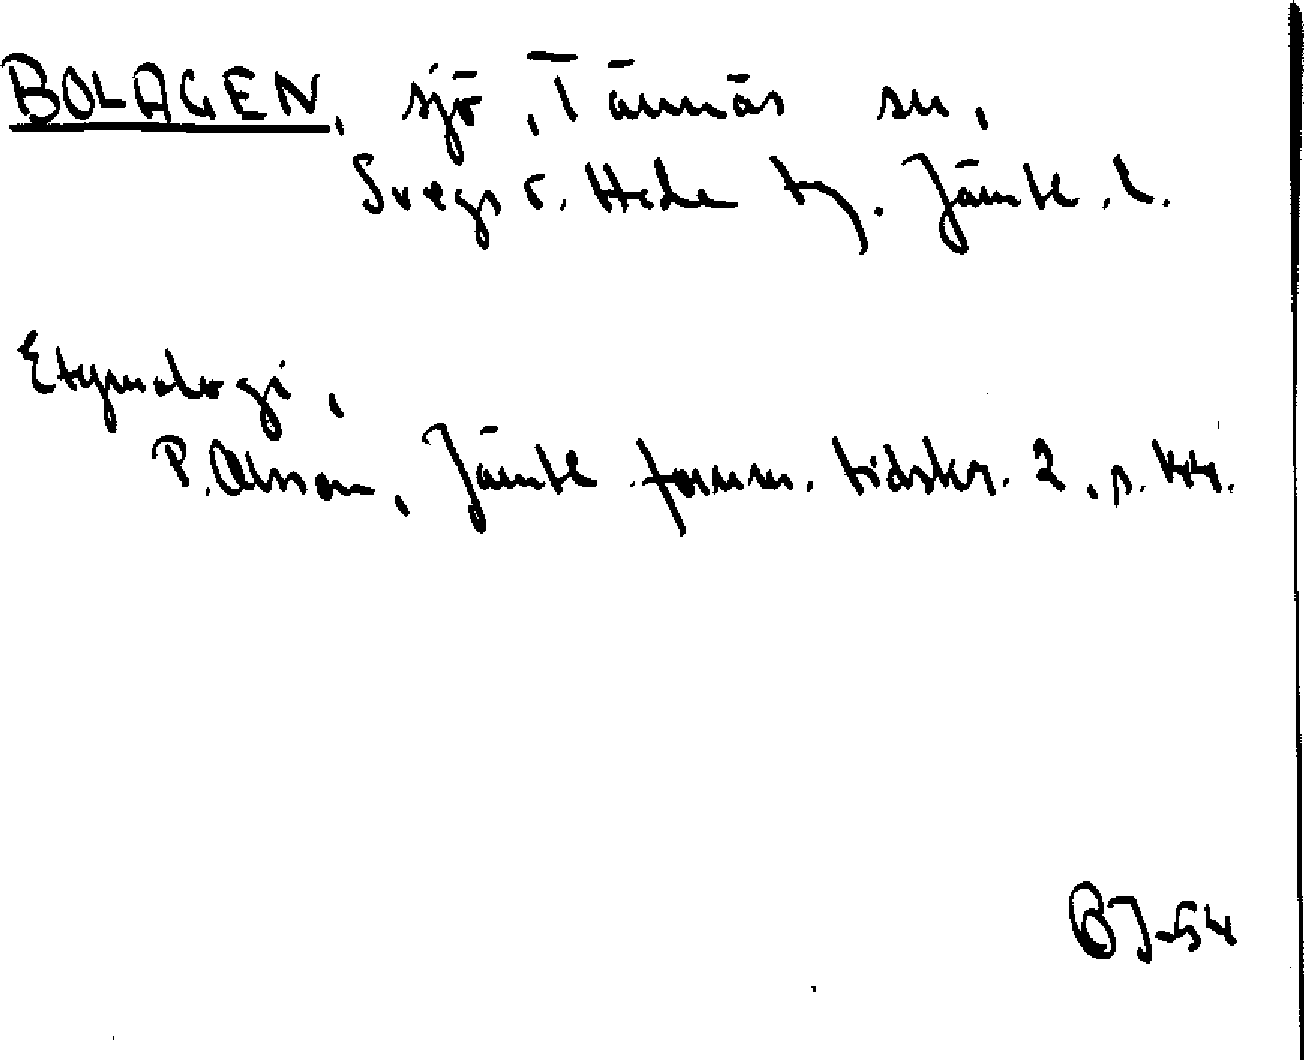 BOLAGEN, sjö, Tännäs sn,
Svegs o. Hede tg. Jämtl. l.
Etymologi,
P. Olsson, Jämtl. fornm. tidskr. 2, s. 44.
BJ-54